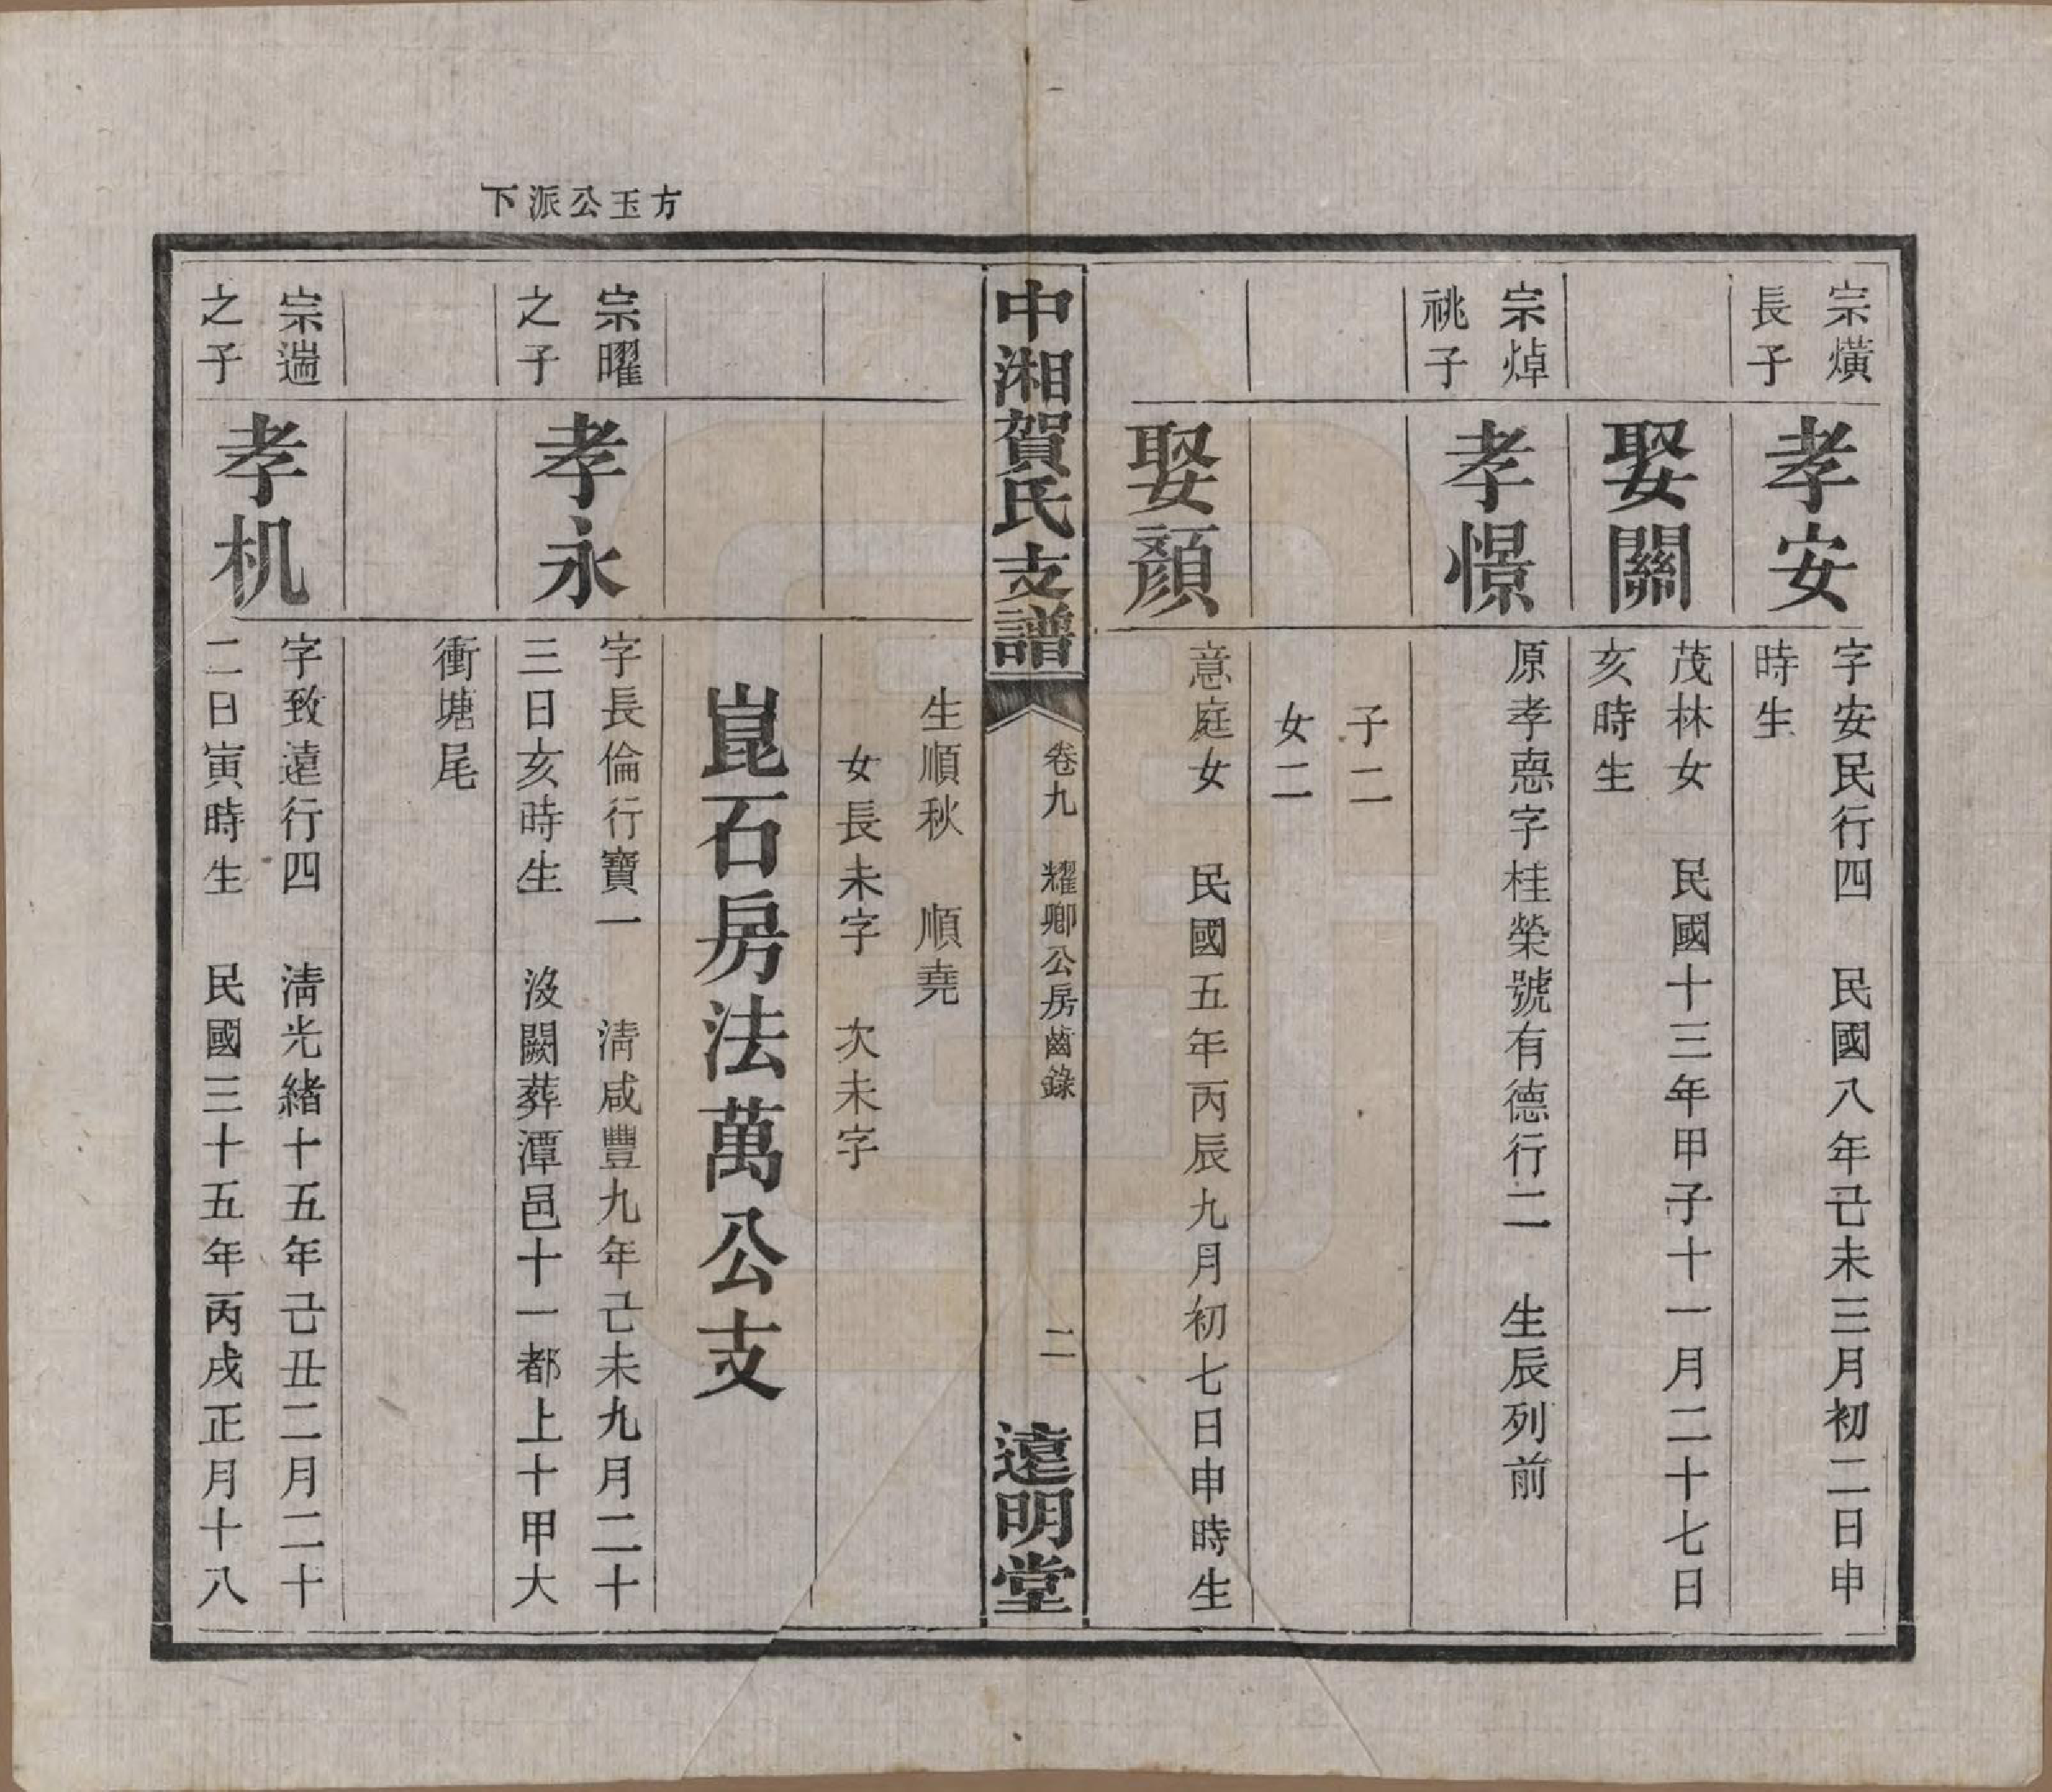 宗熿
長子
孝安
字安民行四　民國八年己未三月初二日申
時生
娶關
茂林女　民國十三年甲子十一月二十七日
亥時生
宗焯
祧子
孝憬
原孝惪字桂榮號有德行二　生辰列前
子二
女二
娶顏
意庭女　民國五年丙辰九月初七日申時生
中湘賀氏支譜
卷九　耀卿公房齒錄
二
遠明堂
生順秋　順堯
女長未字　次未字
方玉公派下
崑石房法萬公支
宗曜
之子
孝永
字長倫行寶一　清咸豐九年己未九月二十
三日亥時生　沒闕葬潭邑十一都上十甲大
衝塘尾
宗湍
之子
孝机
字致遠行四　清光緒十五年己丑二月二十
二日寅時生　民國三十五年丙戌正月十八